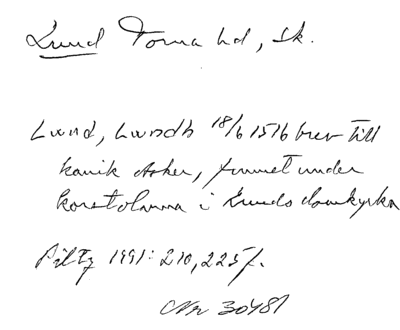 Lund Torna hd, Sk.
Lund, Lunds 18/6 1516 brev till
kanik Asker, funnet under
korstolarna i Lunds domkyrka
Piltz 1991: 210, 225f.
Nr 30481